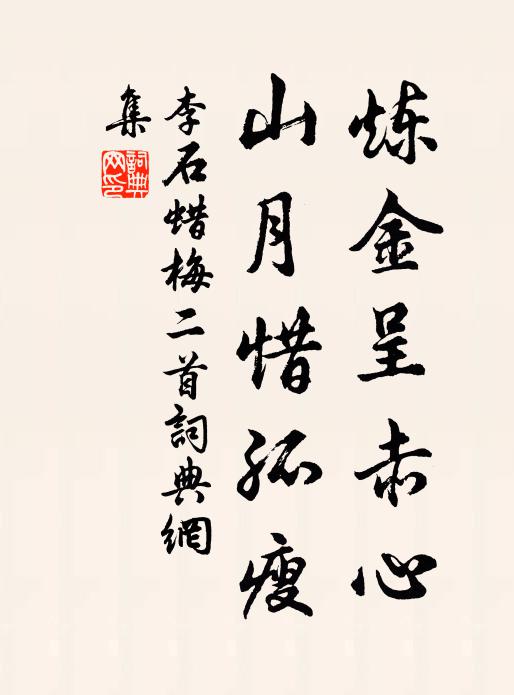 炼金呈赤心
山月惜孤瘦
李石蜡梅二首詞典網
集
詞典网印